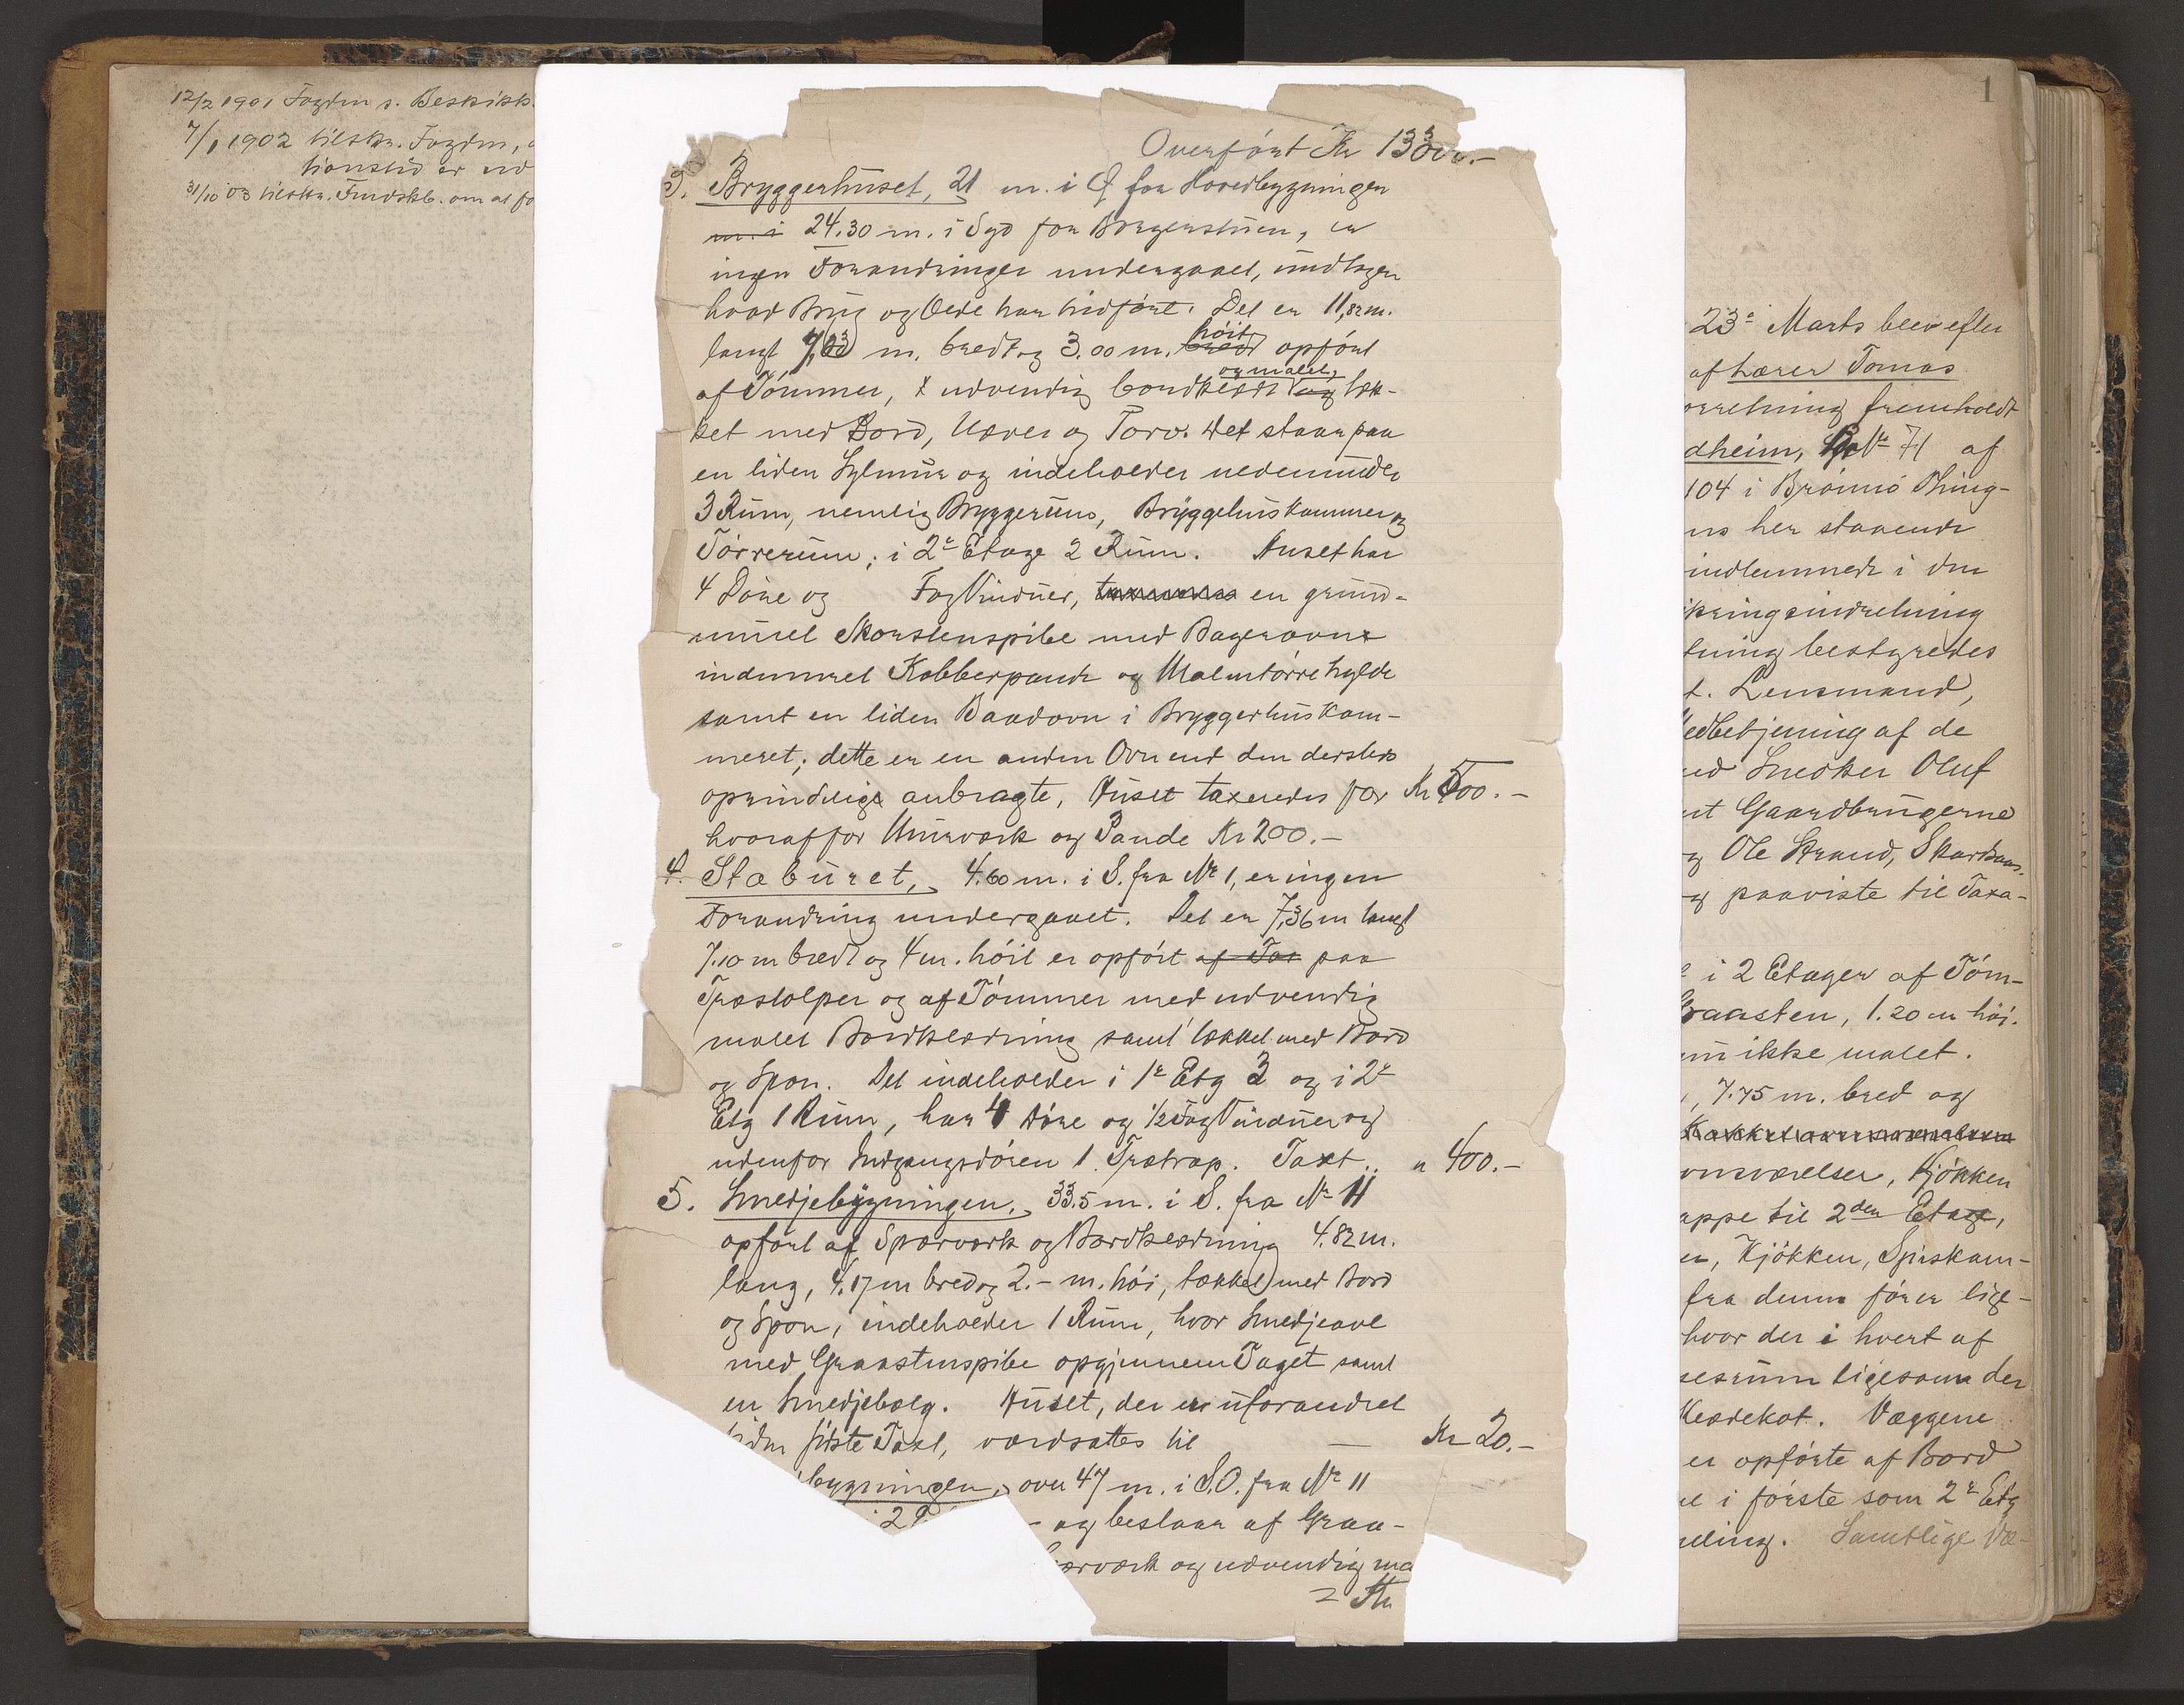 12/2 1901 Fogden s. Beskikk.
7/1 1902 tilskr. Fogden,
tionstid er ud
31/10 03 tilskr. Fredskb. om at fo
Overført Kr 1330
3. Bryggerhuset, 21 m. i Ø fra Hovedbygningen
m. i 24.30 m. i Syd for Borgerstuen, er
ingen Forandringer undergaaet, undtagen
hvad Brug og Ælde har hidført. Det er 11,82 m.
langt 7,23 m. bredt og 3.00 m. bredt høit opført
af Tømmer, udvendig bordklædt og malet, og tæk-
ket med Bord, Næver og Torv. Det staar paa
en liden Sylmur og indeholder nedenunder
3 Rum, nemlig Bryggerum, Bryggehuskammer og
Tørrerum; i 2e Etage 2 Rum. Huset har
4 Døre og Fag Vinduer, en grund-
muret Skorstenspibe med Bagerovn
indmuret Kobberpande og Malmtørrehylde
samt en liden Baadovn i Bryggerhuskam-
meret; dette er en anden Ovn end den dersteds
oprindelige anbragte, Huset taxeredes for Kr 500.-
hvoraf for Murværk og Pande Kr 200.-
4. Staburet, 4.60 m. i S. fra No 1, er ingen
Forandring undergaaet. Det er 7,36 m langt
7.10 m bredt og 4 m. høit er opført af Tøm paa
Træstolper og af Tømmer med udvendig
malet Bordklædning samt tækket med Bord
og Spon. Det indeholder i 1e Etg 3 og i 2e
Etg 1 Rum, har 4 Døre og 1/2 Fag Vinduer og
udenfor Indgangsdøren 1 Trætrap. Taxt.. " 400.-
5. Smedjebygningen, 33.5 m. i S. fra No 11
opført af Spærværk og Bordklædning 4.82 m.
lang, 4.17 m bred og 2.- m. høi, tækket med Bord
og Spon, indeholder 1 Rum, hvor Smedjeavl
med Graastenspibe opgjennem Taget samt
en Smedjebælg. Huset, der er uforandret
siden første Taxt, værdsattes til — Kr 20.-
bygningen, over 47 m. i S.O. fra No 11
- og bestaar af Graa-
ærværk og udvendig ma
Kr
1
23e Marts blev efter
af Lærer Tomas
rretning fremholdt
dheim, No 71 af
104 i Brønnø Thing-
ns her staaende
indlemmede i den
ikringsindretning
tning bestyredes
t. Lensmand,
edbetjening af de
nd Snedker Oluf
nt Gaardbrugerne
g Ole Strand, Skarsaas,
g paaviste til Taxa-
i 2 Etager af Tøm-
Graasten, 1.20 m høi.
m ikke malet.
, 7.75 m. bred og
onsværelser, Kjøkken
appe til 2den Etage,
er, Kjøkken, Spiskam-
fra denne fører lige-
hvor der i hvert af
sesrum ligesom der
Klædekot. Væggene
er opførte af Bord
el i første som 2e Etg
deling. Samtlige Væ-